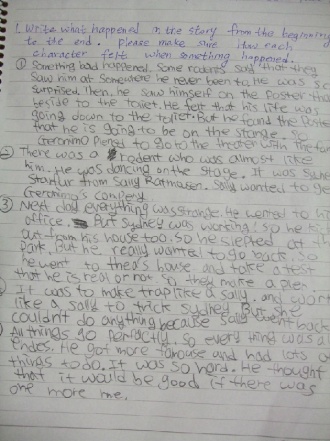 1. Write what happened in the story from the beginning
to the end. Please make sure how each
character felt when something happened.
① Something bad happened. Some rodents said that they
saw him at somewhere he never been to. He was so
surprised. Then, he saw himself on the poster that
beside to the toilet. He felt that his life was
going down to the toilet. But he found the poster
that he is going to be on the stange. So
Geronimo to go to the theater with the fam
② There was a rodent who was almost like
him. He was dancing on the stage. It was Sydne
from Sally Ratmousen. Sally wanted to get
Geronimo's company.
③ Next day everything was strange. He wented to his
office. But Sydney was working! So he kic
out from his house too. So he slepted at th
park. But he really wanted to go back. So
he went to thea's house and take a test
that he is real or not. So they make a plan.
It was to make trap like a sally. and wor
like a sally to trick sydney. But she
couldn't do anything because sally went back
All things go perfectly. So every thing was al
endes. He got more famouse and had lots o
things to do. It was so hard. He thought
that it would be good if there was
one more me.